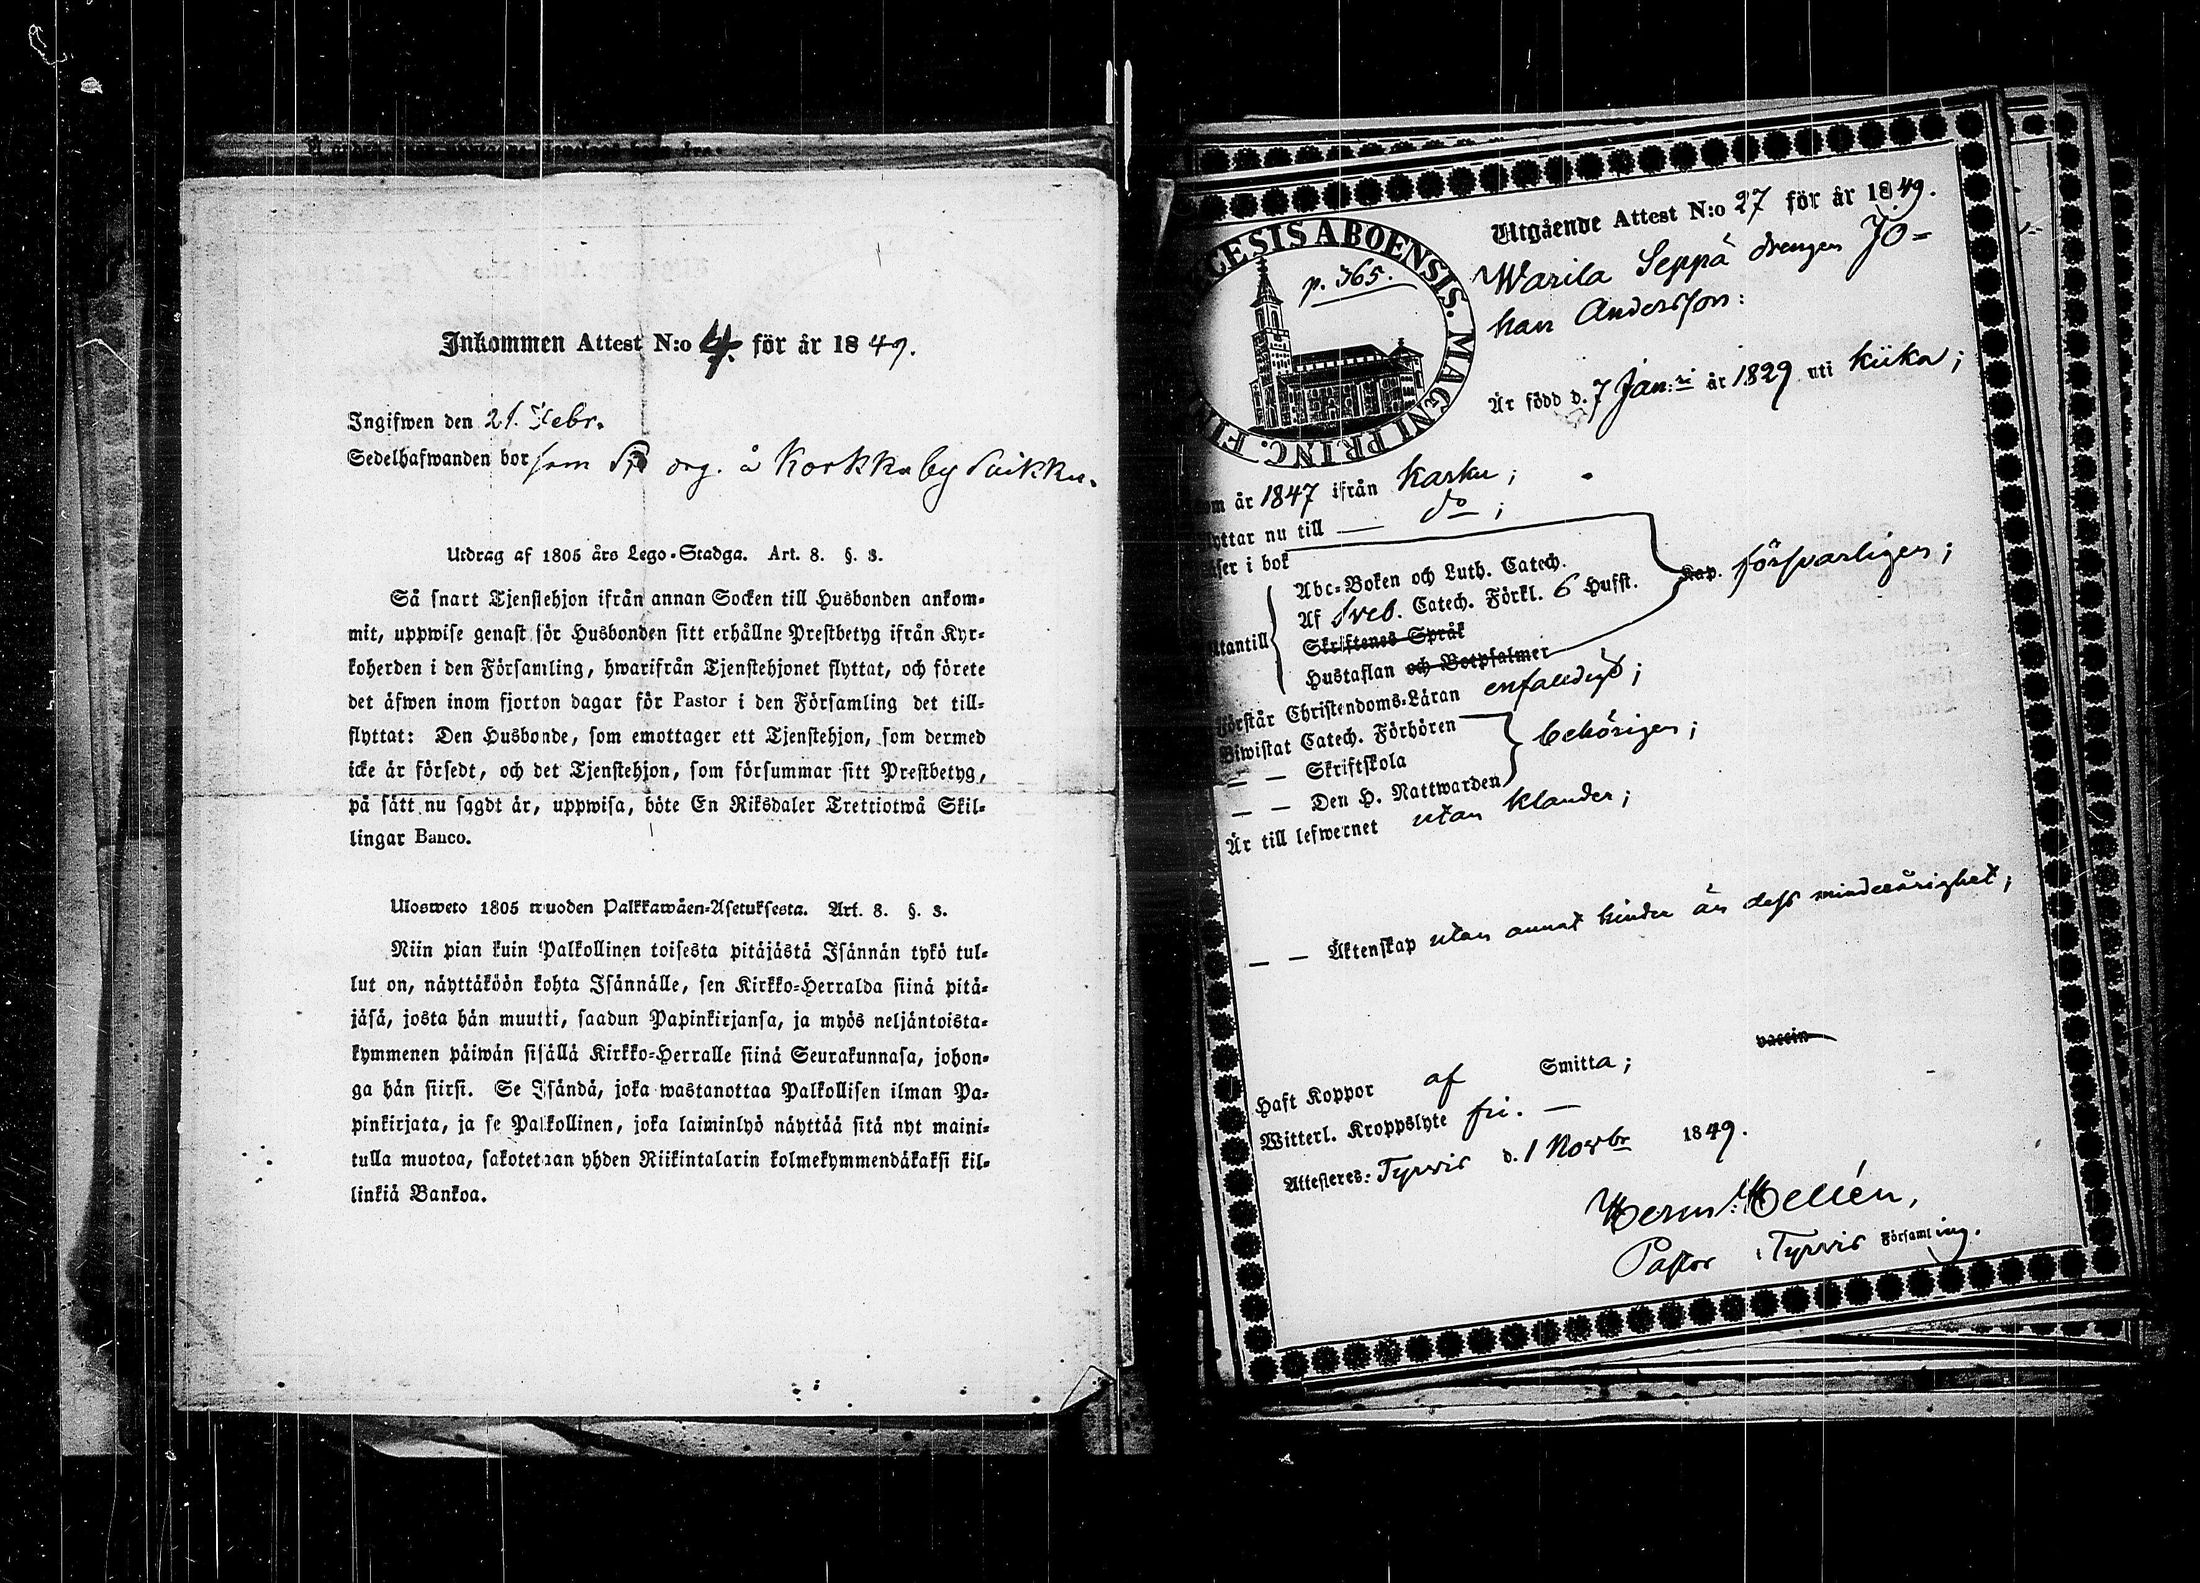 Inkommen Attest N:o 4. för år 1849.
Ingifwen den 21. Febr.
Sedelhafwanden bor som drg. å Korkka by Paikku.
Utdrag af 1805 års Lego-Stadga. Art. 8. §. 3.
Så snart Tjenstehjon ifrån annan Socken till Husbonden ankom-
mit, uppwise genast för Husbonden sitt erhållne Prestbetyg ifrån Kyr-
koherden i den Församling, hwarifrån Tjenstehjonet flyttat, och förete
det äfwen inom fjorton dagar för Pastor i den Församling det till-
flyttat: Den Husbonde, som emottager ett Tjenstehjon, som dermed
icke är försedt, och det Tjenstehjon, som försummar sitt Prestbetyg,
på sätt nu sagdt är, uppwisa, böte En Riksdaler Trettiotwå Skil-
lingar Banco.
Ulosweto 1805 wuoden Palkkawäen-Asetuksesta. Art. 8. §. 3.
Niin pian kuin Palkollinen toisesta pitäjästä Isännän tykö tul-
lut on, näyttäköön kohta Isännälle, sen Kirkko-Herralda siinä pitä-
jäsä, josta hän muutti, saadun Papinkirjansa, ja myös neljäntoista-
kymmenen päiwän sisällä Kirkko-Herralle siinä Seurakunnasa, johon-
ga hän siirsi. Se Isändä, joka wastanottaa Palkollisen ilman Pa-
pinkirjata, ja se Palkollinen, joka laiminlyö näyttää sitä nyt maini-
tulla muotoa, sakotetaan yhden Riikintalarin kolmekymmendäkaksi kil-
linkiä Bankoa.
CESIS ABOENSIS. MAGNI PRINC. FI
p. 365.
Utgående Attest N:o 27 för år 1849.
Warila Seppä drengen Jo-
han Andersson:
Är född d. 7 Jan:ri år 1829 uti Kiika;
om år 1847 ifrån Karku;
yttar nu till — do;
äser i bok
Abc-Boken och Luth. Catech.
Af Sveb. Catech. Förkl. 6 Hufst. Kap. försvarligen;
utantill Skriftenes Språk
Hustaflan och Botpsalmer
Förstår Christendoms-Läran enfaldigt;
Biwistat Catech. Förhören
— — Skriftskola behörigen;
— — Den H. Nattwarden
Är till lefwernet utan klander;
— — Äktenskap utan annat hinder än dess minderårighet;
vaccin
Haft Koppor af Smitta;
Witterl. Kroppslyte fri. —
Attesteres: Tyrvis d. 1 Novbr 1849.
Herm: Hellén,
Pastor i Tyrvis Församling.